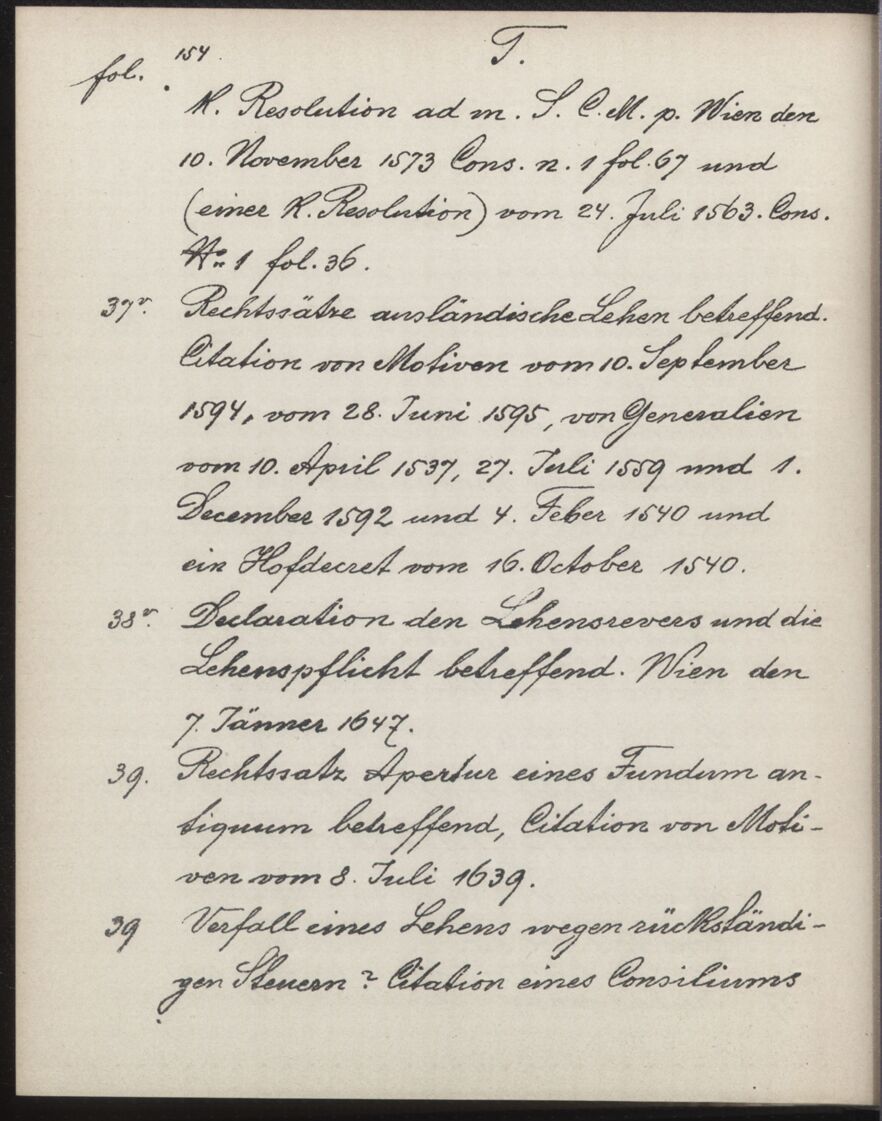 fol. 154 T.
K. Resolution ad m. S. C. M. p. Wien den
10. November 1573 Cons. n. 1 fol. 67 und
(einer K. Resolution) vom 24. Juli 1563. Cons.
No 1 fol. 36.
37v. Rechtssätze ausländische Lehen betreffend.
Citation von Motiven vom 10. September
1594, vom 28. Juni 1595, von Generalien
vom 10. April 1537, 27. Juli 1559 und 1.
December 1592 und 4. Feber 1540 und
ein Hofdecret vom 16. October 1540.
38v. Declaration den Lehensrevers und die
Lehenspflicht betreffend. Wien den
7. Jänner 1647.
39. Rechtssatz Apertur eines Fundum an-
tiquum betreffend, Citation von Moti-
ven vom 8. Juli 1639.
39 Verfall eines Lehens wegen rückständi-
gen Steuern? Citation eines Consiliums